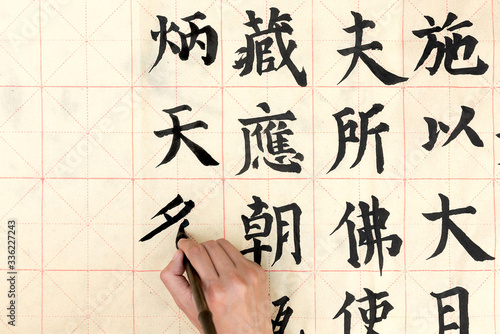 施以大目
夫所佛使
藏應朝
炳天
Adobe Stock | #336227243